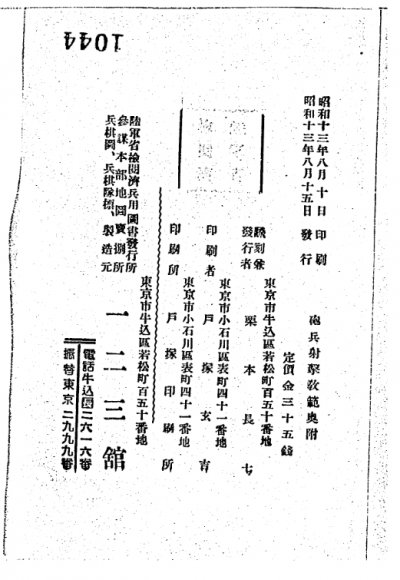 砲兵射撃教範奥附
昭和十三年八月十日印刷
昭和十三年八月十五日發行
定價金三十五錢
東京市牛込區若松町百五十番地
發行者 栗本長七
東京市小石川區表町四十一番地
印刷者 戸塚玄育
東京市小石川區表町四十一番地
印刷所 戸塚印刷所
陸軍省檢閲濟兵用圖書發行所
參謀本部地圖賣捌所
兵棋圖、兵棋隊標、製造元
東京市牛込區若松町百五十番地
一二三舘
電話牛込
振替東京二九九九番
1044